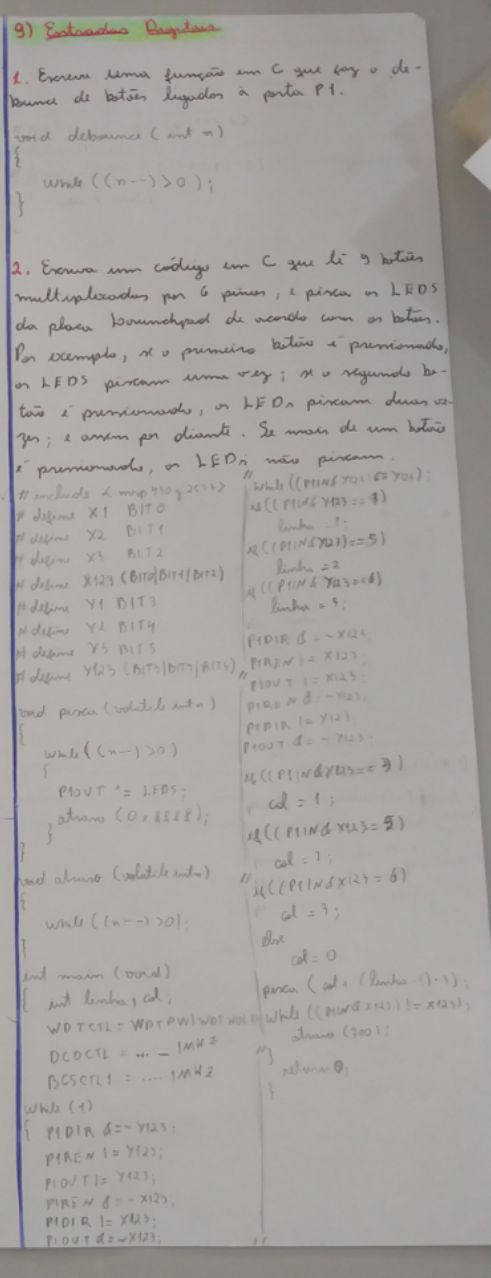 9) Entradas Digitais
1. Escreva uma função em C que faz o de-
bounce de botões ligados à porta P1.
void debounce (int n)
{
while ((n--) > 0);
}
2. Escreva um código em C que lê 9 botões
multiplexados por 6 pinos, e pisca os LEDS
da placa Launchpad de acordo com os botões.
Por exemplo, se o primeiro botão é pressionado,
os LEDS piscam uma vez; se o segundo bo-
tão é pressionado, os LEDs piscam duas ve-
zes; e assim por diante. Se mais de um botão
é pressionado, os LEDs não piscam.
# include < msp430g2553>
# define X1 BIT0
# define X2 BIT1
# define X3 BIT2
# define X123 (BIT0|BIT1|BIT2)
# define Y1 BIT3
# define Y2 BIT4
# define Y3 BIT5
# define Y123 (BIT3|BIT4|BIT5)
void pisca (volatile int n)
{
while ((n--) > 0)
{
P1OUT ^= LEDS;
atraso (0x8888);
}
}
void atraso (volatile int n)
{
while ((n--) > 0);
}
int main (void)
{ int linha, col;
WDTCTL = WDTPW|WDTHOLD
DCOCTL = ... 1MHZ
BCSCTL1 = .... 1MHZ
while (1)
{ P1DIR &= ~Y123;
P1REN |= Y123;
P1OUT |= Y123;
P1REN &= ~X123;
P1DIR |= X123;
P1OUT &= ~X123;
while ((P1IN&
if ((P1IN& Y123 == 3)
linha = 1;
if ((P1IN& Y123) == 5)
linha = 2
if ((P1IN& Y123 == 6)
linha = 3;
P1DIR &= ~X123;
P1REN |= X123;
P1OUT |= X123;
P1REN &= ~Y123;
P1DIR |= Y123
P1OUT &= ~Y123;
if ((P1IN&X123 == 3)
col = 1;
if ((P1IN& X123 = 5)
col = 2;
if ((P1IN&X123 = 6)
col = 3;
else
col = 0
pisca (col + (linha - 1)·3);
while ((P1IN& X123) != X123);
atraso (300);
}
return 0;
}